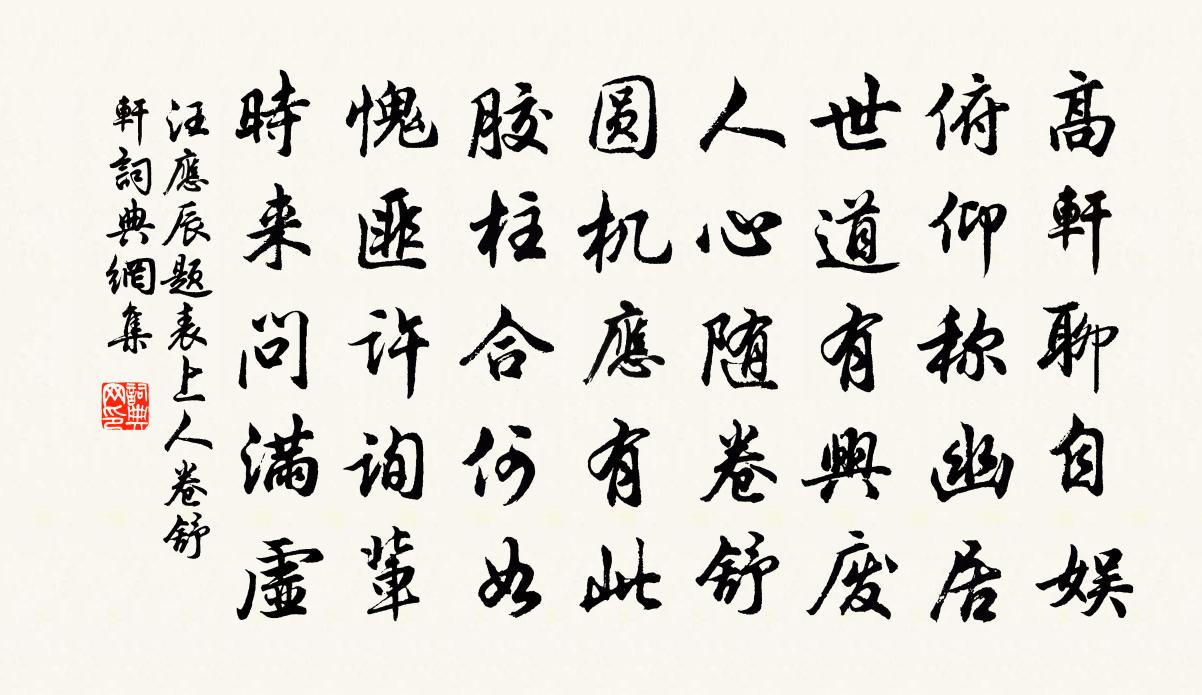 高軒聊自娱
俯仰称幽居
世道有興废
人心随卷舒
圆机應有此
胶柱合何如
愧匪许询輩
時来问满虚
汪應辰题表上人卷舒
軒詞典網集
詞典
网印